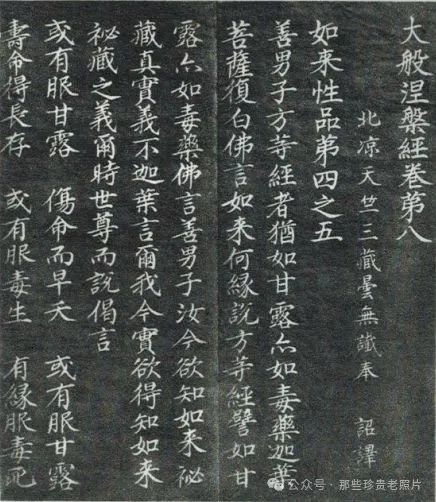 大般涅槃經卷第八
北涼天竺三藏曇無讖奉 詔譯
如来性品第四之五
善男子方等經者猶如甘露亦如毒藥迦葉
菩薩復白佛言如来何緣說方等經譬如甘
露亦如毒藥佛言善男子汝今欲知如来祕
藏真實義不迦葉言爾我今實欲得知如来
祕藏之義爾時世尊而說偈言
或有服甘露 傷命而早夭 或有服甘露
壽命得長存 或有服毒生 有緣服毒死
公众号·那些珍贵老照片